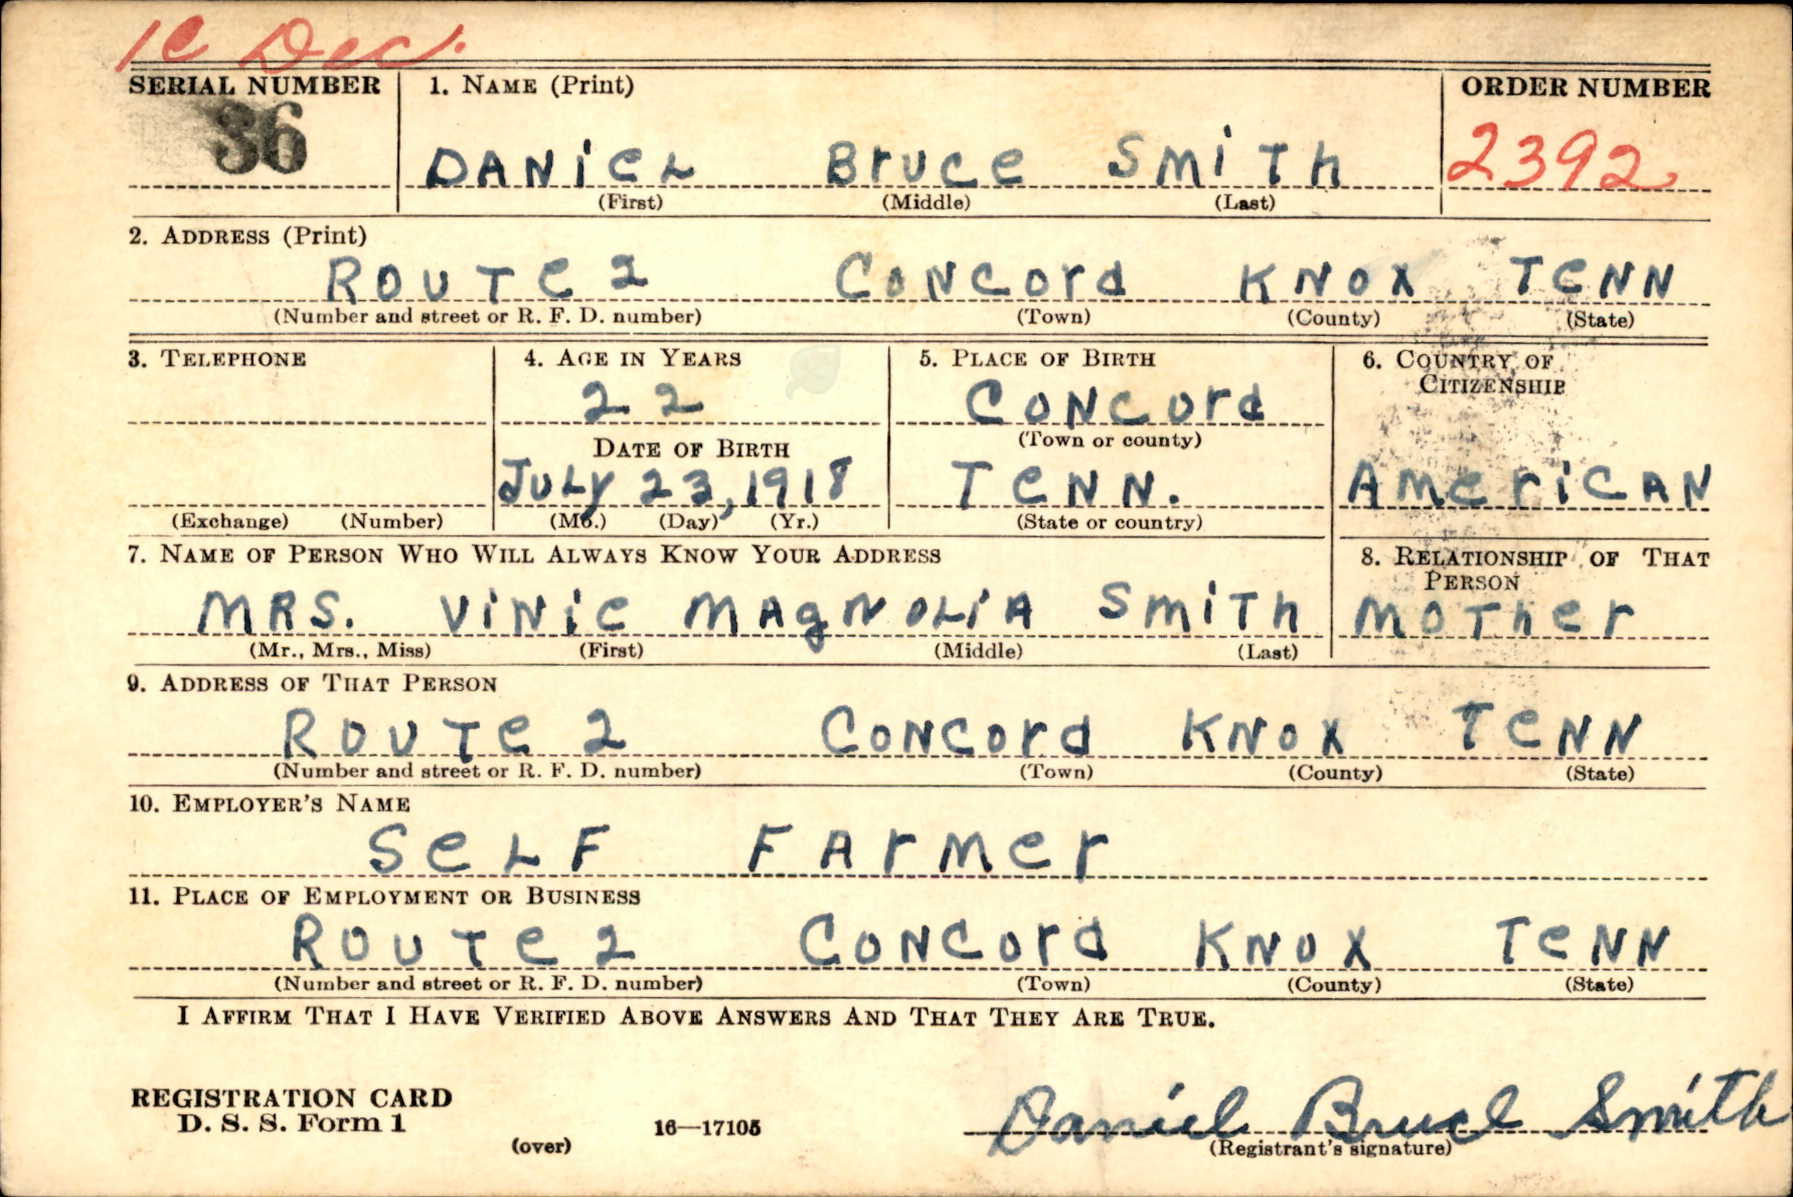 1C Dec.
SERIAL NUMBER 1. NAME (Print) ORDER NUMBER
36 DANieL Bruce SMiTh 2392
(First) (Middle) (Last)
2. ADDRESS (Print)
ROUTe 2 CONCord KNOX TeNN
(Number and street or R. F. D. number) (Town) (County) (State)
3. TELEPHONE 4. AGE IN YEARS 5. PLACE OF BIRTH 6. COUNTRY OF
CITIZENSHIP
22 CONCord
DATE OF BIRTH (Town or county)
JULy 23, 1918 TeNN. AMericAN
(Exchange) (Number) (Mo.) (Day) (Yr.) (State or country)
7. NAME OF PERSON WHO WILL ALWAYS KNOW YOUR ADDRESS 8. RELATIONSHIP OF THAT
PERSON
MRS. ViNie MAgNOLiA SmiTh MOTher
(Mr., Mrs., Miss) (First) (Middle) (Last)
9. ADDRESS OF THAT PERSON
ROUTe 2 CONCord KNOX TeNN
(Number and street or R. F. D. number) (Town) (County) (State)
10. EMPLOYER'S NAME
SeLF FArMer
11. PLACE OF EMPLOYMENT OR BUSINESS
ROUTe 2 CONCord KNOX TeNN
(Number and street or R. F. D. number) (Town) (County) (State)
I AFFIRM THAT I HAVE VERIFIED ABOVE ANSWERS AND THAT THEY ARE TRUE.
REGISTRATION CARD
D. S. S. Form 1
(over) 16—17105 Daniel Bruce Smith
(Registrant's signature)